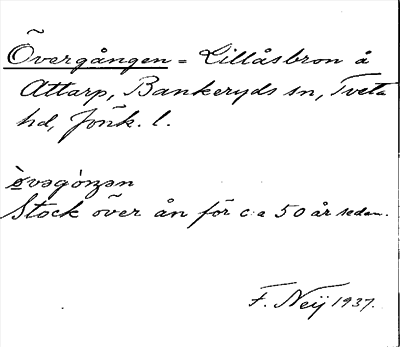 Övergången = Lillåsbron å
Attarp, Bankeryds sn, Tveta
hd, Jönk. l.
Stock över ån för c:a 50 år sedan.
F. Neij 1937.